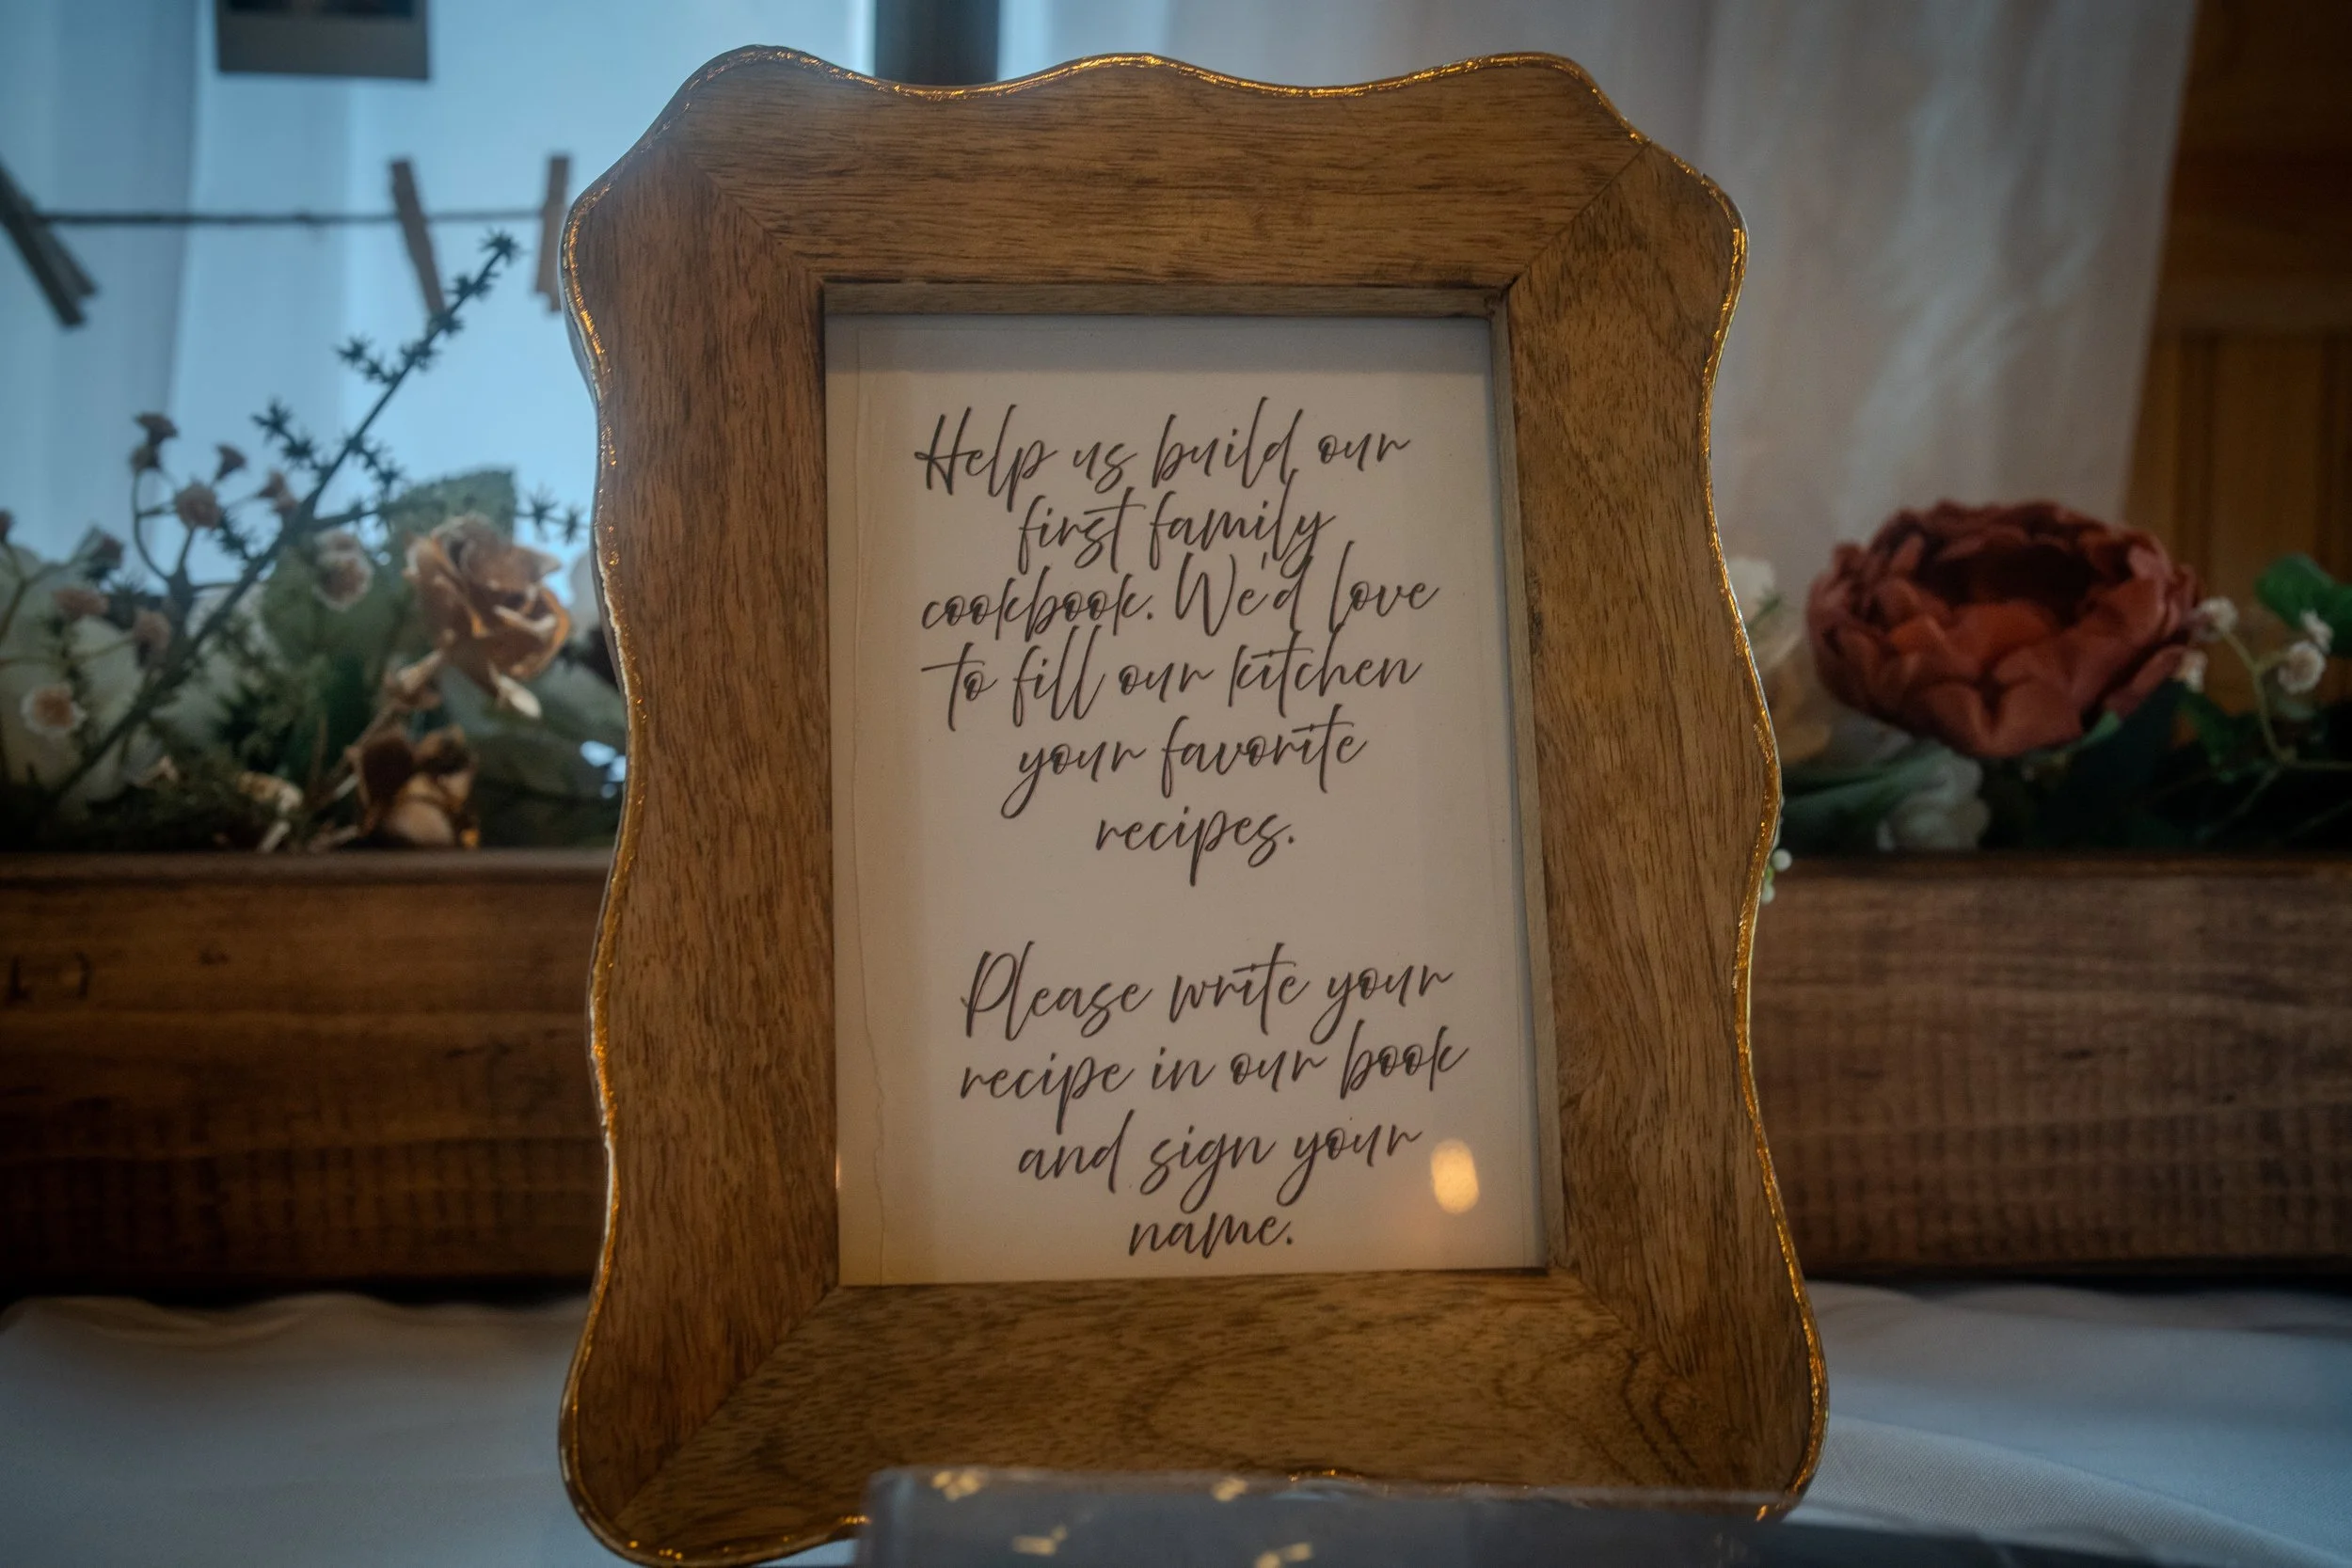 Help us build our
first family
cookbook. We'd love
to fill our kitchen
your favorite
recipes.
Please write your
recipe in our book
and sign your
name.